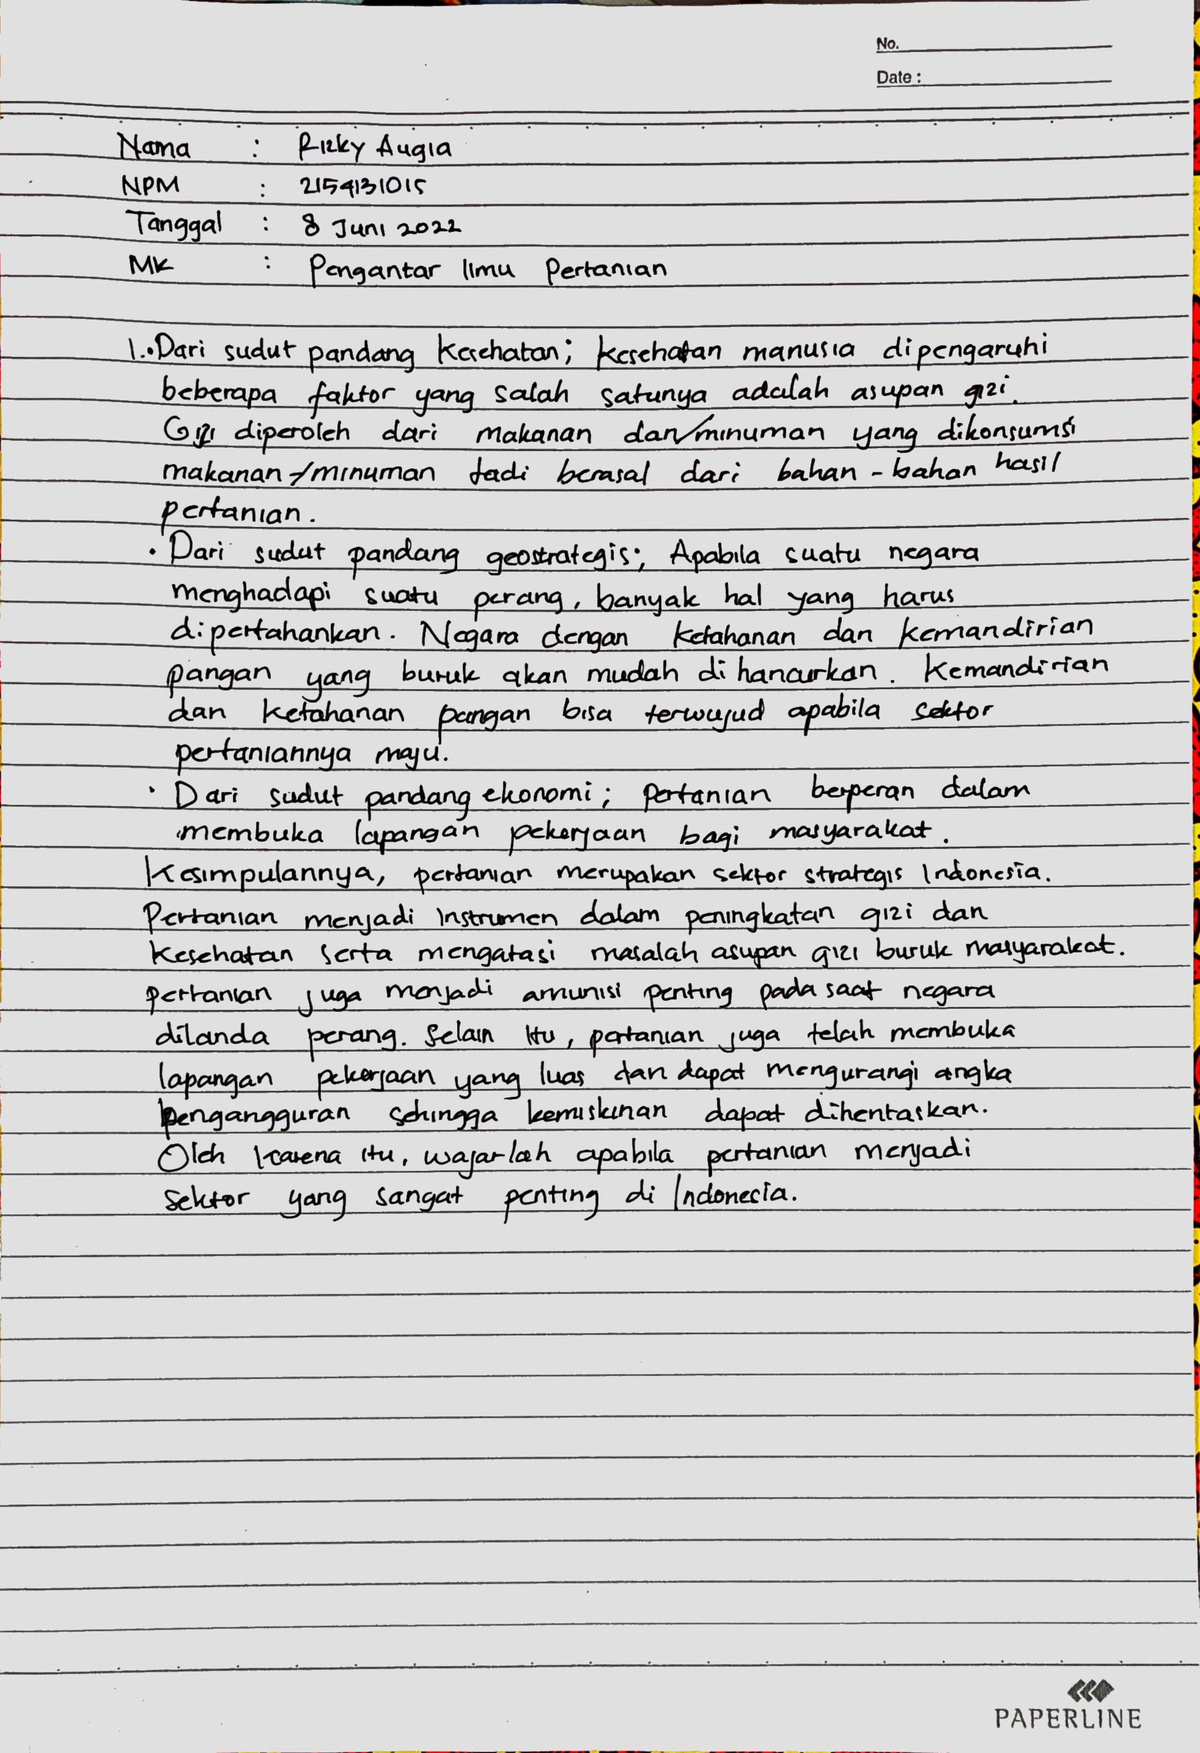 No.
Date :
Nama : Rizky Augia
NPM : 2154131015
Tanggal : 8 Juni 2022
MK : Pengantar Ilmu Pertanian
1. • Dari sudut pandang Kesehatan; kesehatan manusia dipengaruhi
beberapa faktor yang salah satunya adalah asupan gizi.
Gizi diperoleh dari makanan dan/minuman yang dikonsumsi
makanan/minuman tadi berasal dari bahan-bahan hasil
pertanian.
• Dari sudut pandang geostrategis; Apabila suatu negara
menghadapi suatu perang, banyak hal yang harus
dipertahankan. Negara dengan ketahanan dan kemandirian
pangan yang buruk akan mudah di hancurkan. Kemandirian
dan ketahanan pangan bisa terwujud apabila sektor
pertaniannya maju.
• Dari sudut pandang ekonomi; pertanian berperan dalam
membuka lapangan pekerjaan bagi masyarakat.
Kesimpulannya, pertanian merupakan sektor strategis Indonesia.
Pertanian menjadi instrumen dalam peningkatan gizi dan
Kesehatan serta mengatasi masalah asupan gizi buruk masyarakat.
pertanian juga menjadi amunisi penting pada saat negara
dilanda perang. Selain itu, pertanian juga telah membuka
lapangan pekerjaan yang luas dan dapat mengurangi angka
pengangguran sehingga kemiskinan dapat dihentaskan.
Oleh karena itu, wajarlah apabila pertanian menjadi
sektor yang sangat penting di Indonesia.
PAPERLINE